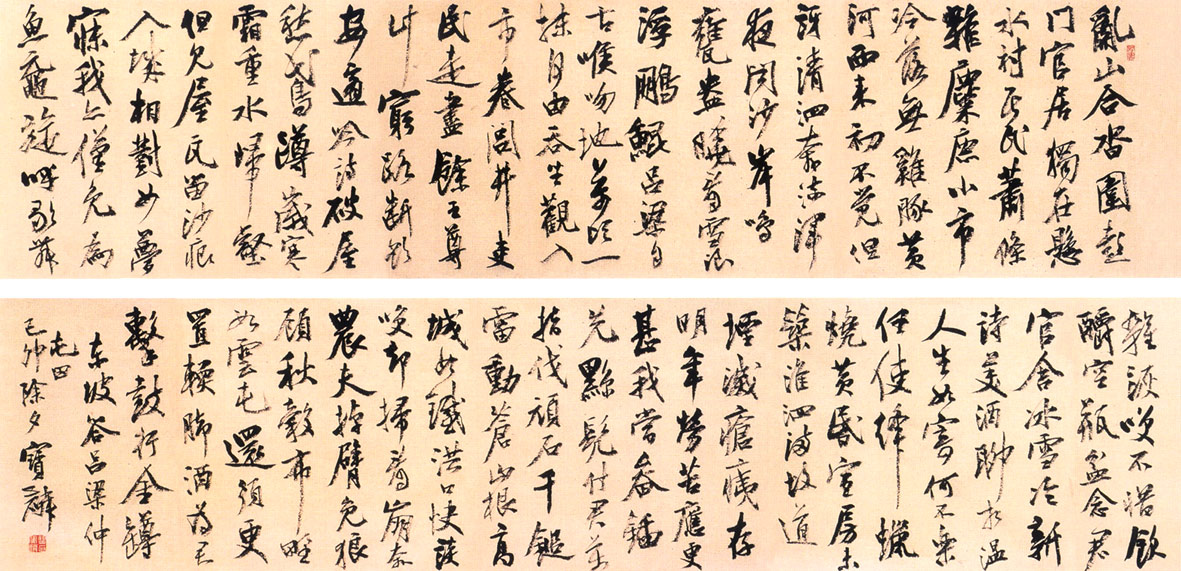 亂山合沓圍彭
門官居獨在懸
水村居民蕭條
雜麋鹿小市
冷落無雞豚黃
河西來初不覺但
訝清泗奔流渾
夜聞沙岸鳴
甕盎曉看雪浪
浮鵬鯤呂梁自
古喉吻地萬頃一
抹何由吞坐觀入
市卷閭井吏
民走盡餘王尊
計窮路斷欲
安適吟詩破屋
愁鳶蹲歲寒
霜重水歸壑
但見屋瓦留沙痕
入城相對如夢
寐我亦僅免為
魚黿旋呼歌舞
雜詼笑不惜飲
釂空瓶盆念君
官舍冰雪冷新
詩美酒聊相溫
人生如寄何不樂
任使絳蠟
燒黃昏宣房未
築淮泗滿故道
堙滅瘡痍存
明年勞苦應更
甚我當畚鍤
先黥髡付君萬
指伐頑石千鎚
雷動蒼山根高
城如鐵洪口快談
笑卻掃看崩奔
農夫掉臂免狼
顧秋穀布野
如雲屯還須更
置軟腳酒為君
擊鼓行金罇
東坡答呂梁仲
屯田
己卯除夕寶麟